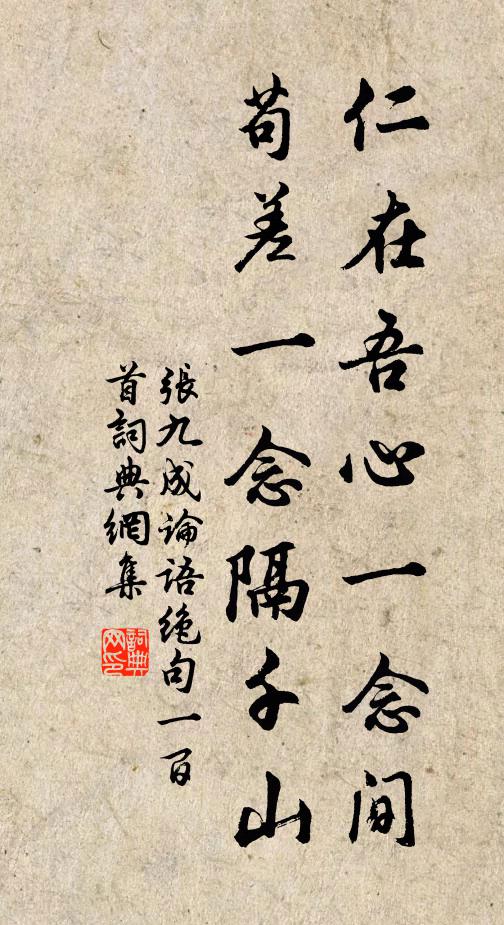 仁在吾心一念間
苟差一念隔千山
張九成論語絶句一百
首詞典網集
詞典
网印